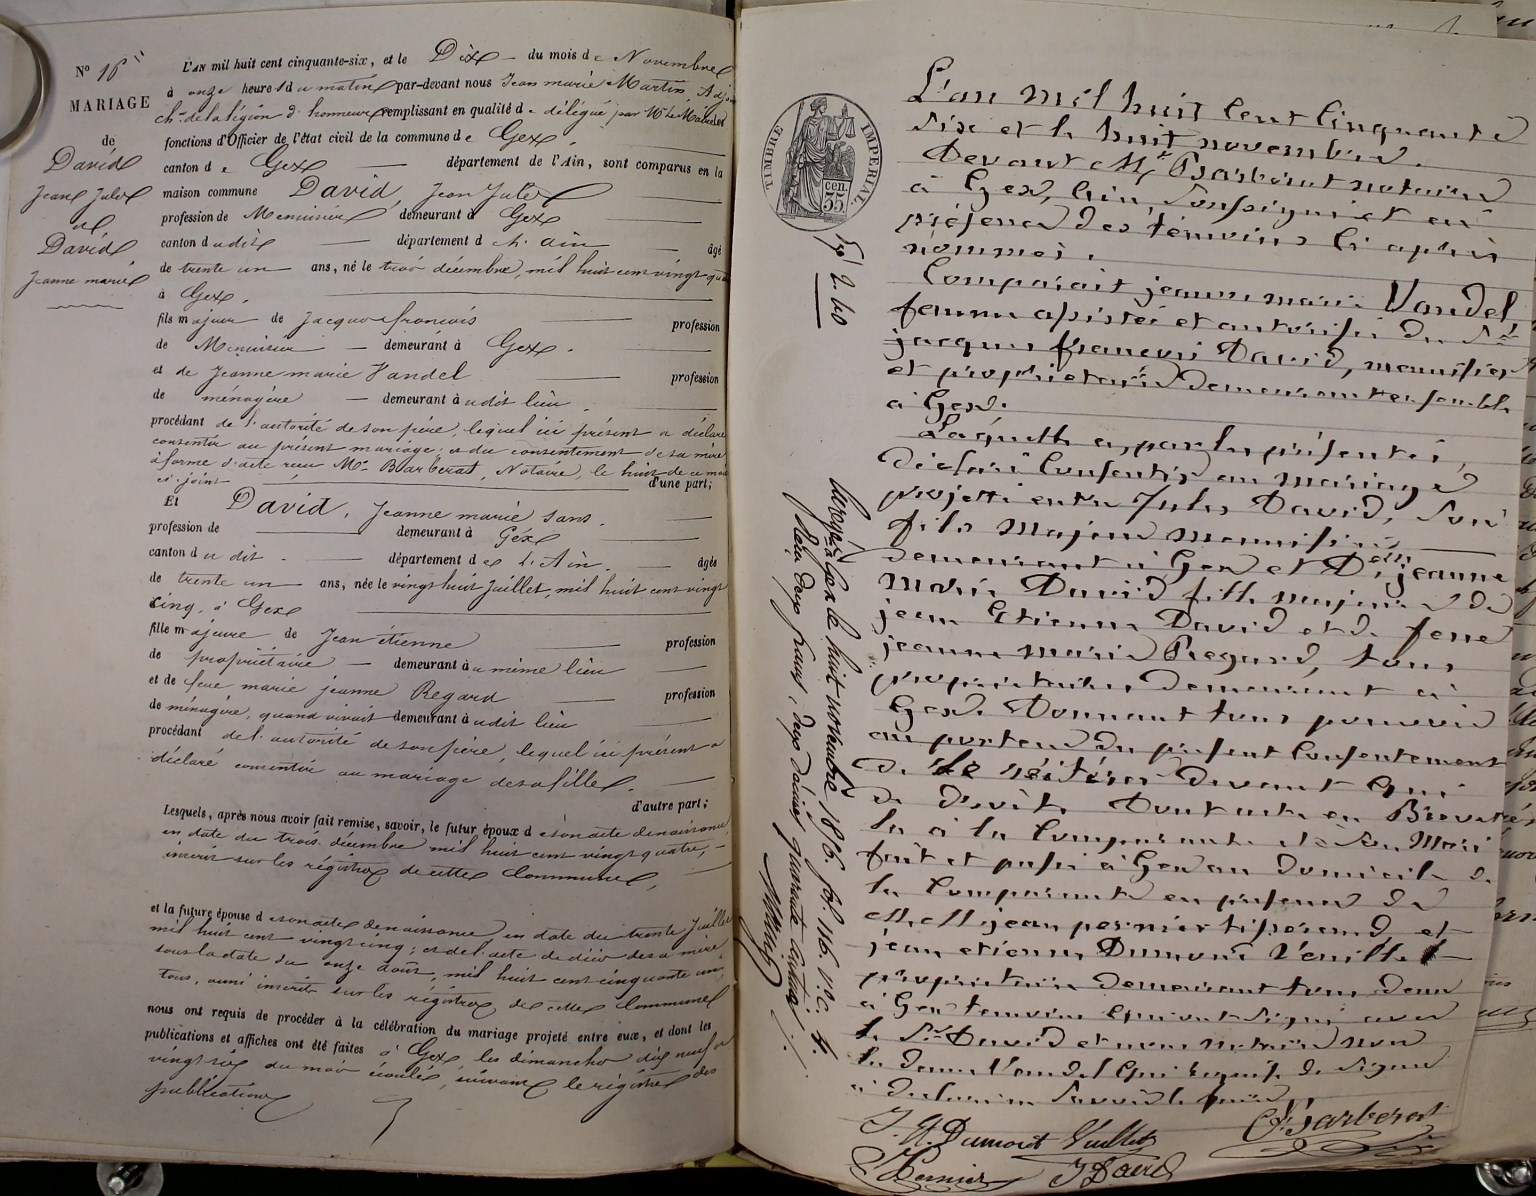 N° 16
MARIAGE
de
David
Jean Jules
et
David
Jeanne marie
L'AN mil huit cent cinquante-six, et le Dix du mois de Novembre
à onze heures du matin par-devant nous Jean marie Martin, Adj
ch. de la légion d'honneur remplissant en qualité de délégué par Mr le Maire les
fonctions d'Officier de l'état civil de la commune de Gex,
canton de Gex département de l'Ain, sont comparus en la
maison commune David, Jean Jules
profession de Menuisier demeurant à Gex
canton dudit département de l'ain âgé
de trente un ans, né le trois décembre, mil huit cent vingt quatre
à Gex.
fils majeur de Jacques françois profession
de Menuisier demeurant à Gex.
et de Jeanne marie Vandel profession
de ménagère demeurant audit lieu
procédant de l'autorité de son père, lequel ici présent a déclaré
consentir au présent mariage, et du consentement de sa mère
à forme d'acte reçu Me Barberat, Notaire, le huit de ce mois
ci-joint d'une part;
Et David, Jeanne marie sans
profession de demeurant à Gex
canton du dit département de l'Ain. âgée
de trente un ans, née le vingt huit Juillet, mil huit cent vingt
cinq, à Gex
fille majeure de Jean étienne profession
de propriétaire demeurant au même lieu
et de feue marie jeanne Regard profession
de ménagère, quand vivait demeurant audit lieu
procédant de l'autorité de son père, lequel ici présent a
déclaré consentir au mariage de sa fille.
d'autre part;
Lesquels, après nous avoir fait remise, savoir, le futur époux de son acte de naissance
en date du trois décembre mil huit cent vingt quatre,
inscrit sur les régistres de cette Commune,
et la future épouse de son acte de naissance en date du trente Juillet
mil huit cent vingt cinq; et de l'acte de décès de sa mère
sous la date du onze août, mil huit cent cinquante un,
tous, aussi inscrits sur les régistres de cette Commune
nous ont requis de procéder à la célébration du mariage projeté entre eux, et dont les
publications et affiches ont été faites à Gex les dimanches dix neuf et
vingt six du mois écoulé, suivant le régistre des
publications
TIMBRE IMPERIAL
35 cen.
L'an mil huit cent cinquante
six et le huit novembre.
Devant Me Barberat notaire
à Gex, Ain, soussigné et en
présence des témoins ci après
nommés.
Comparait jeanne marie Vandel
femme assistée et autorisée du Sr
jacques françois David, menuisier
et propriétaire demeurant ensemble
à Gex.
Laquelle a, par les présentes,
déclaré consentir au mariage
projetté entre Jules David, son
fils majeur menuisier
demeurant à Gex et Dlle jeanne
marie David fille majeure de
jean Etienne David et de feue
jeanne marie Regard, tous
propriétaires demeurant à
Gex. Donnant tous pouvoirs
au porteur du présent consentement
de le réitérer devant qui
de droit. Dont acte en Brevet
lu à la comparante et à son mari
fait et passé à Gex au domicile de
la comparante en présence de
MM jean pernier tisserand et
jean etienne Dumont Vuillet
propriétaire demeurant tous deux
à Gex témoins qui ont signé avec
le Sr David et nous notaire non
la dame Vandel qui requise de signer
a déclaré ne savoir le faire
J. E. Dumont Vuillet
Barberat
Pernier J David
Exp 2.40
Enregistré à Gex le huit novembre 1856. fol. 116. v° c. 4.
Reçu deux francs, deux décimes quarante centimes